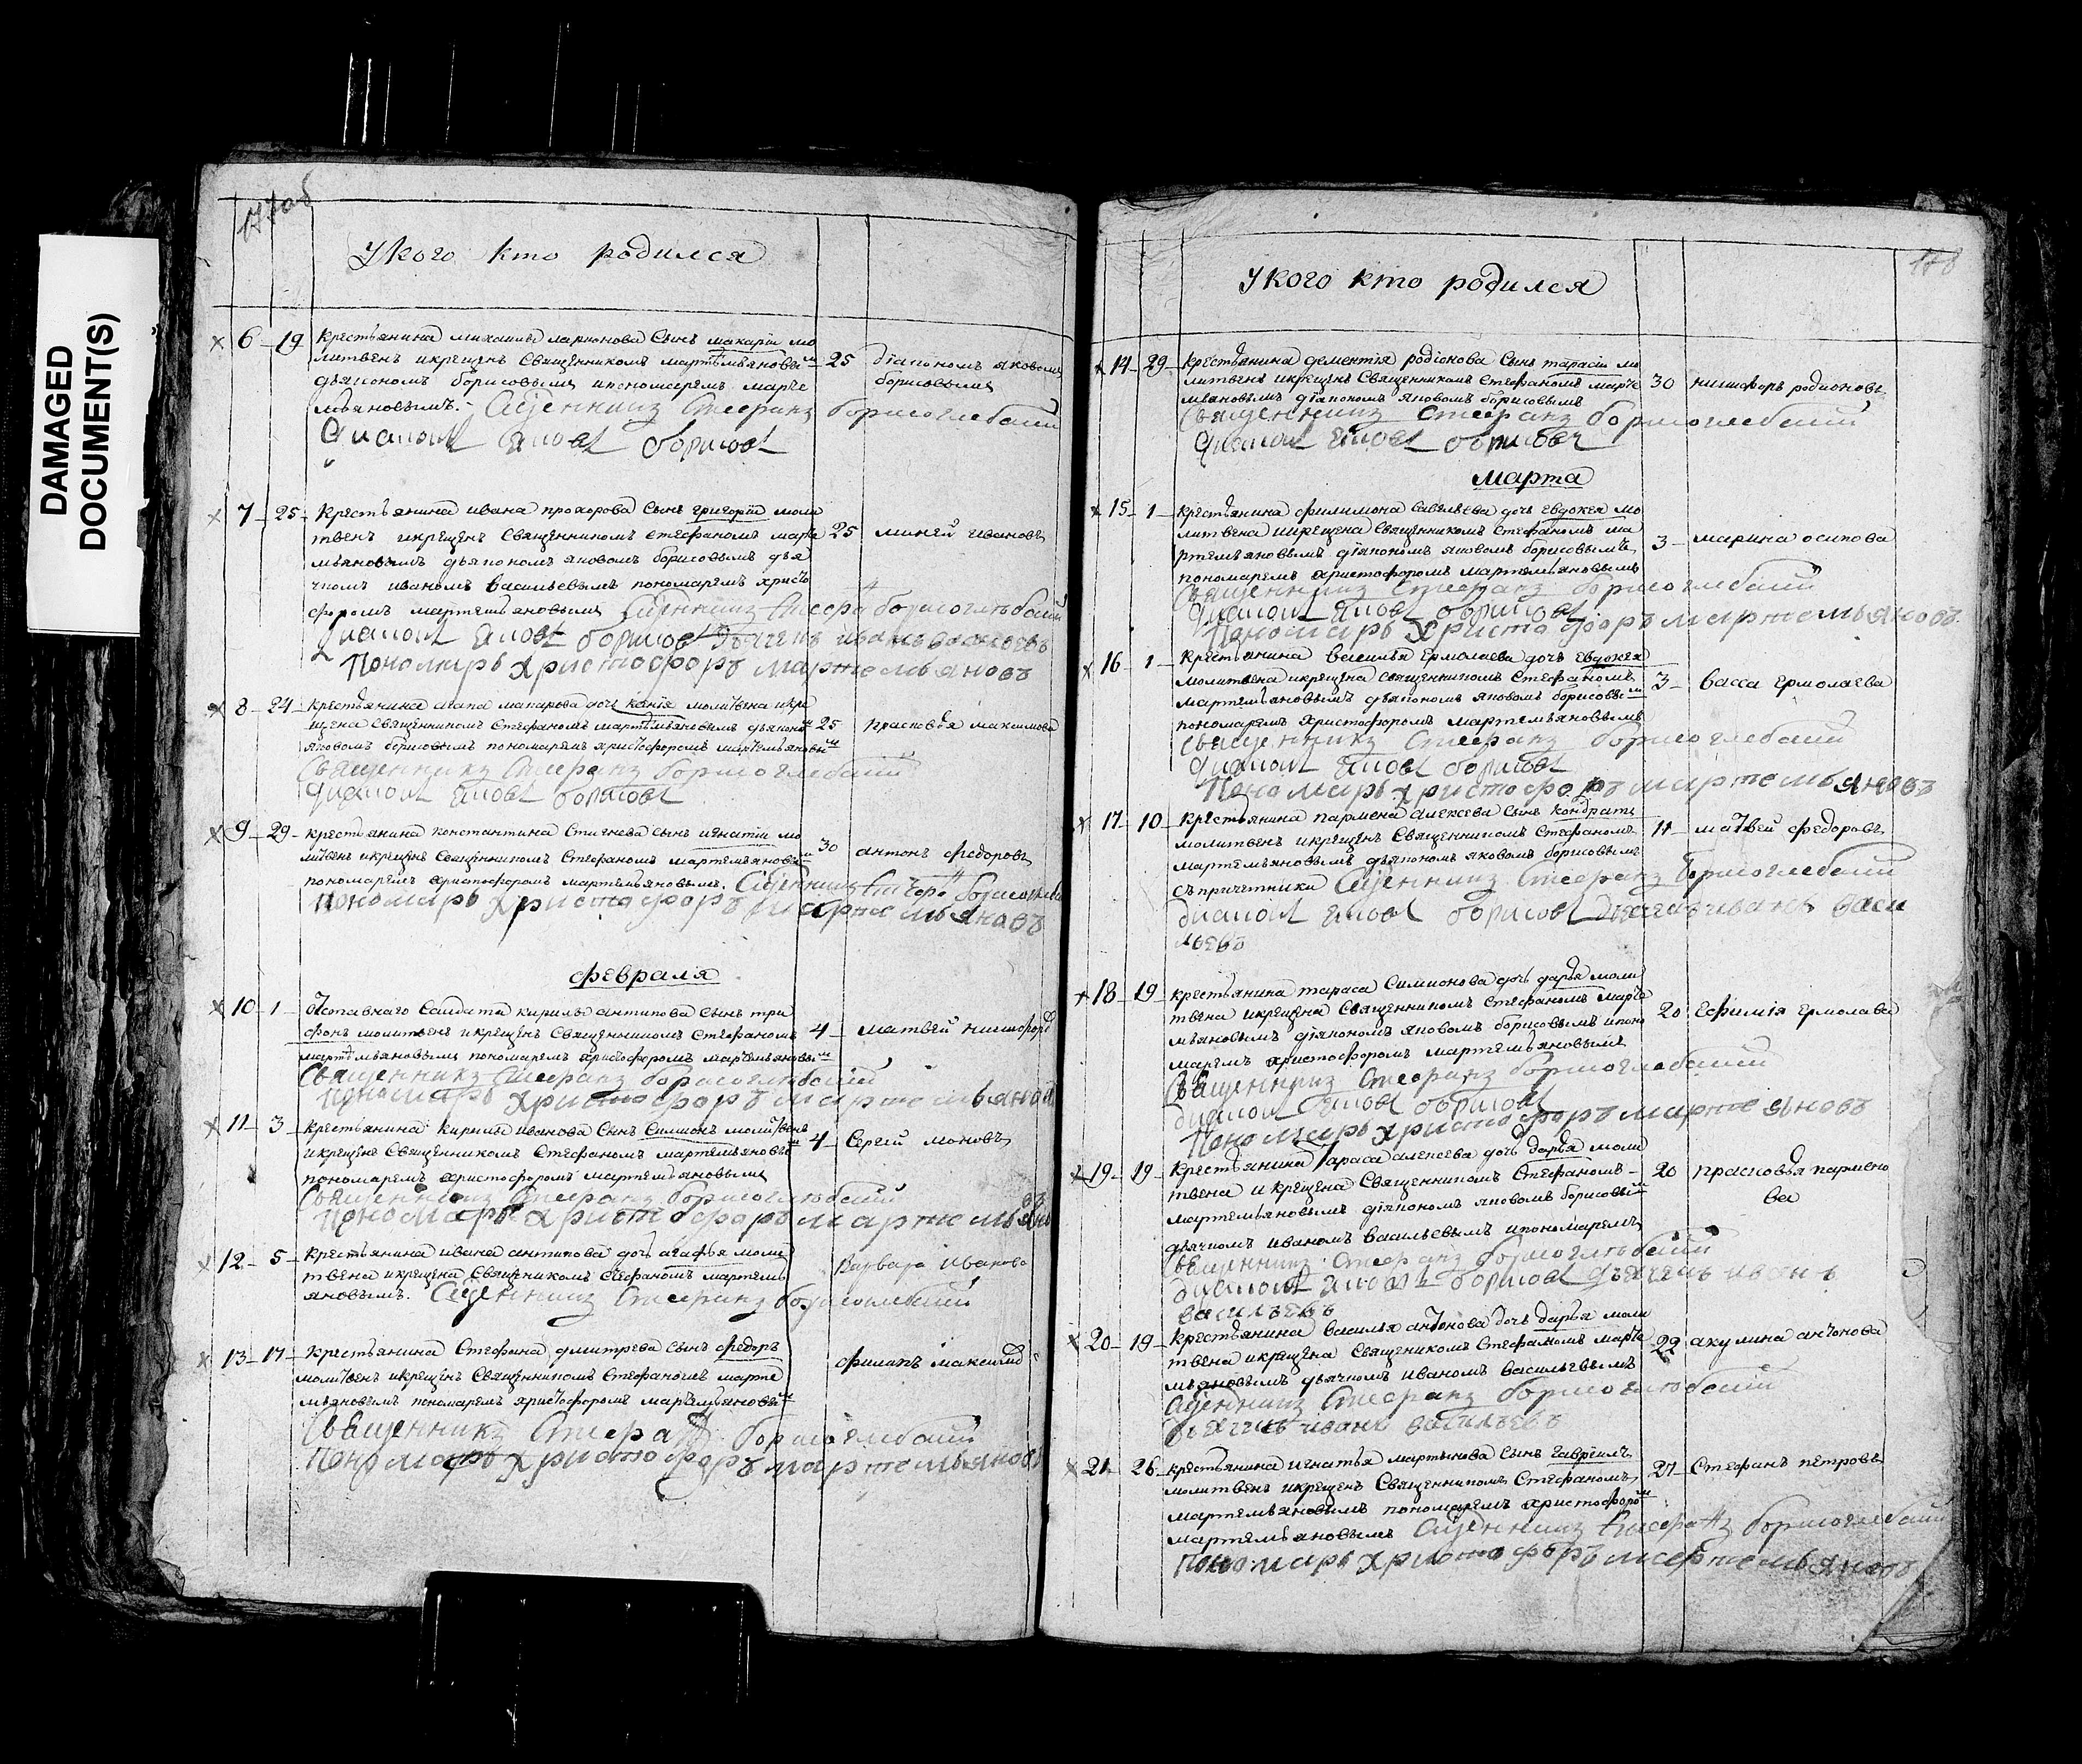 DAMAGED
DOCUMENT(S)
177об
Укого кто родился
6 19 Крестьянина михаила ларионова Сынъ макарiи мо
литвенъ икрещенъ Священникомъ мартемьяновы м 25 дiакономъ яковомъ
дьякономъ борисовымъ ипономаремъ марте борисовымъ
мьяновымъ. Священникъ Стефанъ борисоглебскiй
Диаконъ Яковъ борисовъ
7 25 Крестьянина ивана прохорова Сынъ григорiи моли
твенъ икрещенъ Священникомъ стефаномъ марте 25 миней ивановъ
мьяновымъ дьякономъ яковомъ борисовымъ дья
чкомъ иваномъ васильевымъ пономаремъ христо
форомъ мартемьяновымъ Священникъ Стефанъ борисоглебскiй
Диаконъ Яковъ борисовъ Дьячекъ иванъ васильевъ
Пономарь христофоръ мартемьяновъ
8 24 Крестьянина агапа макарова дочь ксенiя молитвена икре
щена Священникомъ Стефаномъ мартемьяновымъ дьякono м 25 прасковья максимова
яковомъ борисовымъ пономаремъ христофоромъ мартемьяновы м
Священникъ Стефанъ борисоглебскiй
Диаконъ Яковъ борисовъ
9 29 крестьянина константина Сынъ игнатiи мо
литвенъ икрещенъ Священникомъ Стефаномъ мартемьяновы м 30 антонъ федоровъ
пономаремъ христофоромъ мартемьяновымъ. Священникъ Стефанъ
пономарь христофоръ мартемьяновъ
февраля
10 1 Отставнаго Салдата кирилы антипова Сынъ три
фонъ молитвенъ икрещенъ Священникомъ Стефаномъ 4 матвей никифоро
мартемьяновымъ пономаремъ христофоромъ мартемьяновы м
Священникъ Стефанъ борисоглебскiй
пономарь христофоръ мартемьянов
11 3 крестьянина кирилы иванова Сынъ Симионъ молитвенъ
икрещенъ Священникомъ Стефаномъ мартемьяновы м 4 Сергей
пономаремъ христофоромъ мартемьяновымъ
Священникъ Стефанъ борисоглебскiй
пономарь христофоръ мартемьяновъ
12 5 крестьянина ивана антипова дочь агафья моли
твена икрещена Священникомъ Стефаномъ мартемь Варвара иванова
яновымъ. Священникъ Стефанъ борисоглебскiй
13 17 крестьянина Стефана дмитрева Сынъ федоръ филипъ максимов
молитвенъ икрещенъ Священникомъ Стефаномъ марте
мьяновымъ пономаремъ христофоромъ мартемьяновы м
Священникъ Стефанъ борисоглебскiй
пономарь христофоръ мартемьяновъ
178
Укого кто родился
14 29 крестьянина дементiя родiонова Сынъ тарасiи мо
литвенъ икрещенъ Священникомъ Стефаномъ марте 30 никифоръ родионовъ
мьяновымъ дiякономъ яковомъ борисовымъ
Священникъ Стефанъ борисоглебскiй
Диаконъ Яковъ борисовъ
марта
15 1 крестьянина филимона савельева дочь евдокея мо
литвена икрещена Священникомъ Стефаномъ ма
ртемьяновымъ дiякономъ яковомъ борисовымъ 3 марина осипова
пономаремъ христофоромъ мартемьяновымъ
Священникъ Стефанъ борисоглебскiй
Диаконъ Яковъ борисовъ
Пономарь Христофоръ мартемьяновъ
16 1 крестьянина василья Ермолаева дочь евдокея
молитвена икрещена священникомъ Стефаномъ 3 васса ермолаева
мартемьяновымъ дьякономъ яковомъ борисовы м
пономаремъ христофоромъ мартемьяновымъ
Священникъ Стефанъ борисоглебскiй
Диаконъ Яковъ борисовъ
Пономарь христофоръ мартемьяновъ
17 10 крестьянина пармена алексева Сынъ кондратъ
молитвенъ икрещенъ Священникомъ Стефаномъ 11 матвей федоровъ
мартемьяновымъ дьякономъ яковомъ борисовымъ
съ причетники Священникъ Стефанъ борисоглебскiй
диаконъ Яковъ борисовъ Дьячекъ иванъ васи
льевъ
18 19 крестьянина тараса Симионова дочь дарья моли
твена икрещена Священникомъ Стефаномъ марте 20 Ефимiя Ермолаева
мьяновымъ дiякономъ яковомъ борисовымъ ипоно
маремъ христофоромъ мартемьяновымъ
Священникъ Стефанъ борисоглебскiй
диаконъ Яковъ борисовъ
Пономарь христофоръ мартемьяновъ
19 19 крестьянина тараса алексева дочь дарья моли
твена икрещена Священникомъ Стефаномъ 20 прасковья пармено
мартемьяновымъ дiякономъ яковомъ борисовы м ва
дьячкомъ иваномъ васильевымъ ипономаремъ
Священникъ Стефанъ борисоглебскiй
диаконъ Яковъ борисовъ дьячекъ иванъ
васильевъ
20 19 крестьянина василья антонова дочь дарья моли
твена икрещена Священикомъ Стефаномъ марте 22 акулина антонова
мьяновымъ дьячкомъ иваномъ васильевымъ
Священникъ Стефанъ борисоглебскiй
Дьячекъ иванъ васильевъ
21 26 крестьянина игнатья мартынова Сынъ гаврiилъ
молитвенъ икрещенъ Священникомъ Стефаномъ 27 Стефанъ петровъ
мартемьяновымъ пономаремъ христофоро м
мартемьяновымъ Священникъ Стефанъ борисоглебскiй
пономарь христофоръ мартемьяновъ